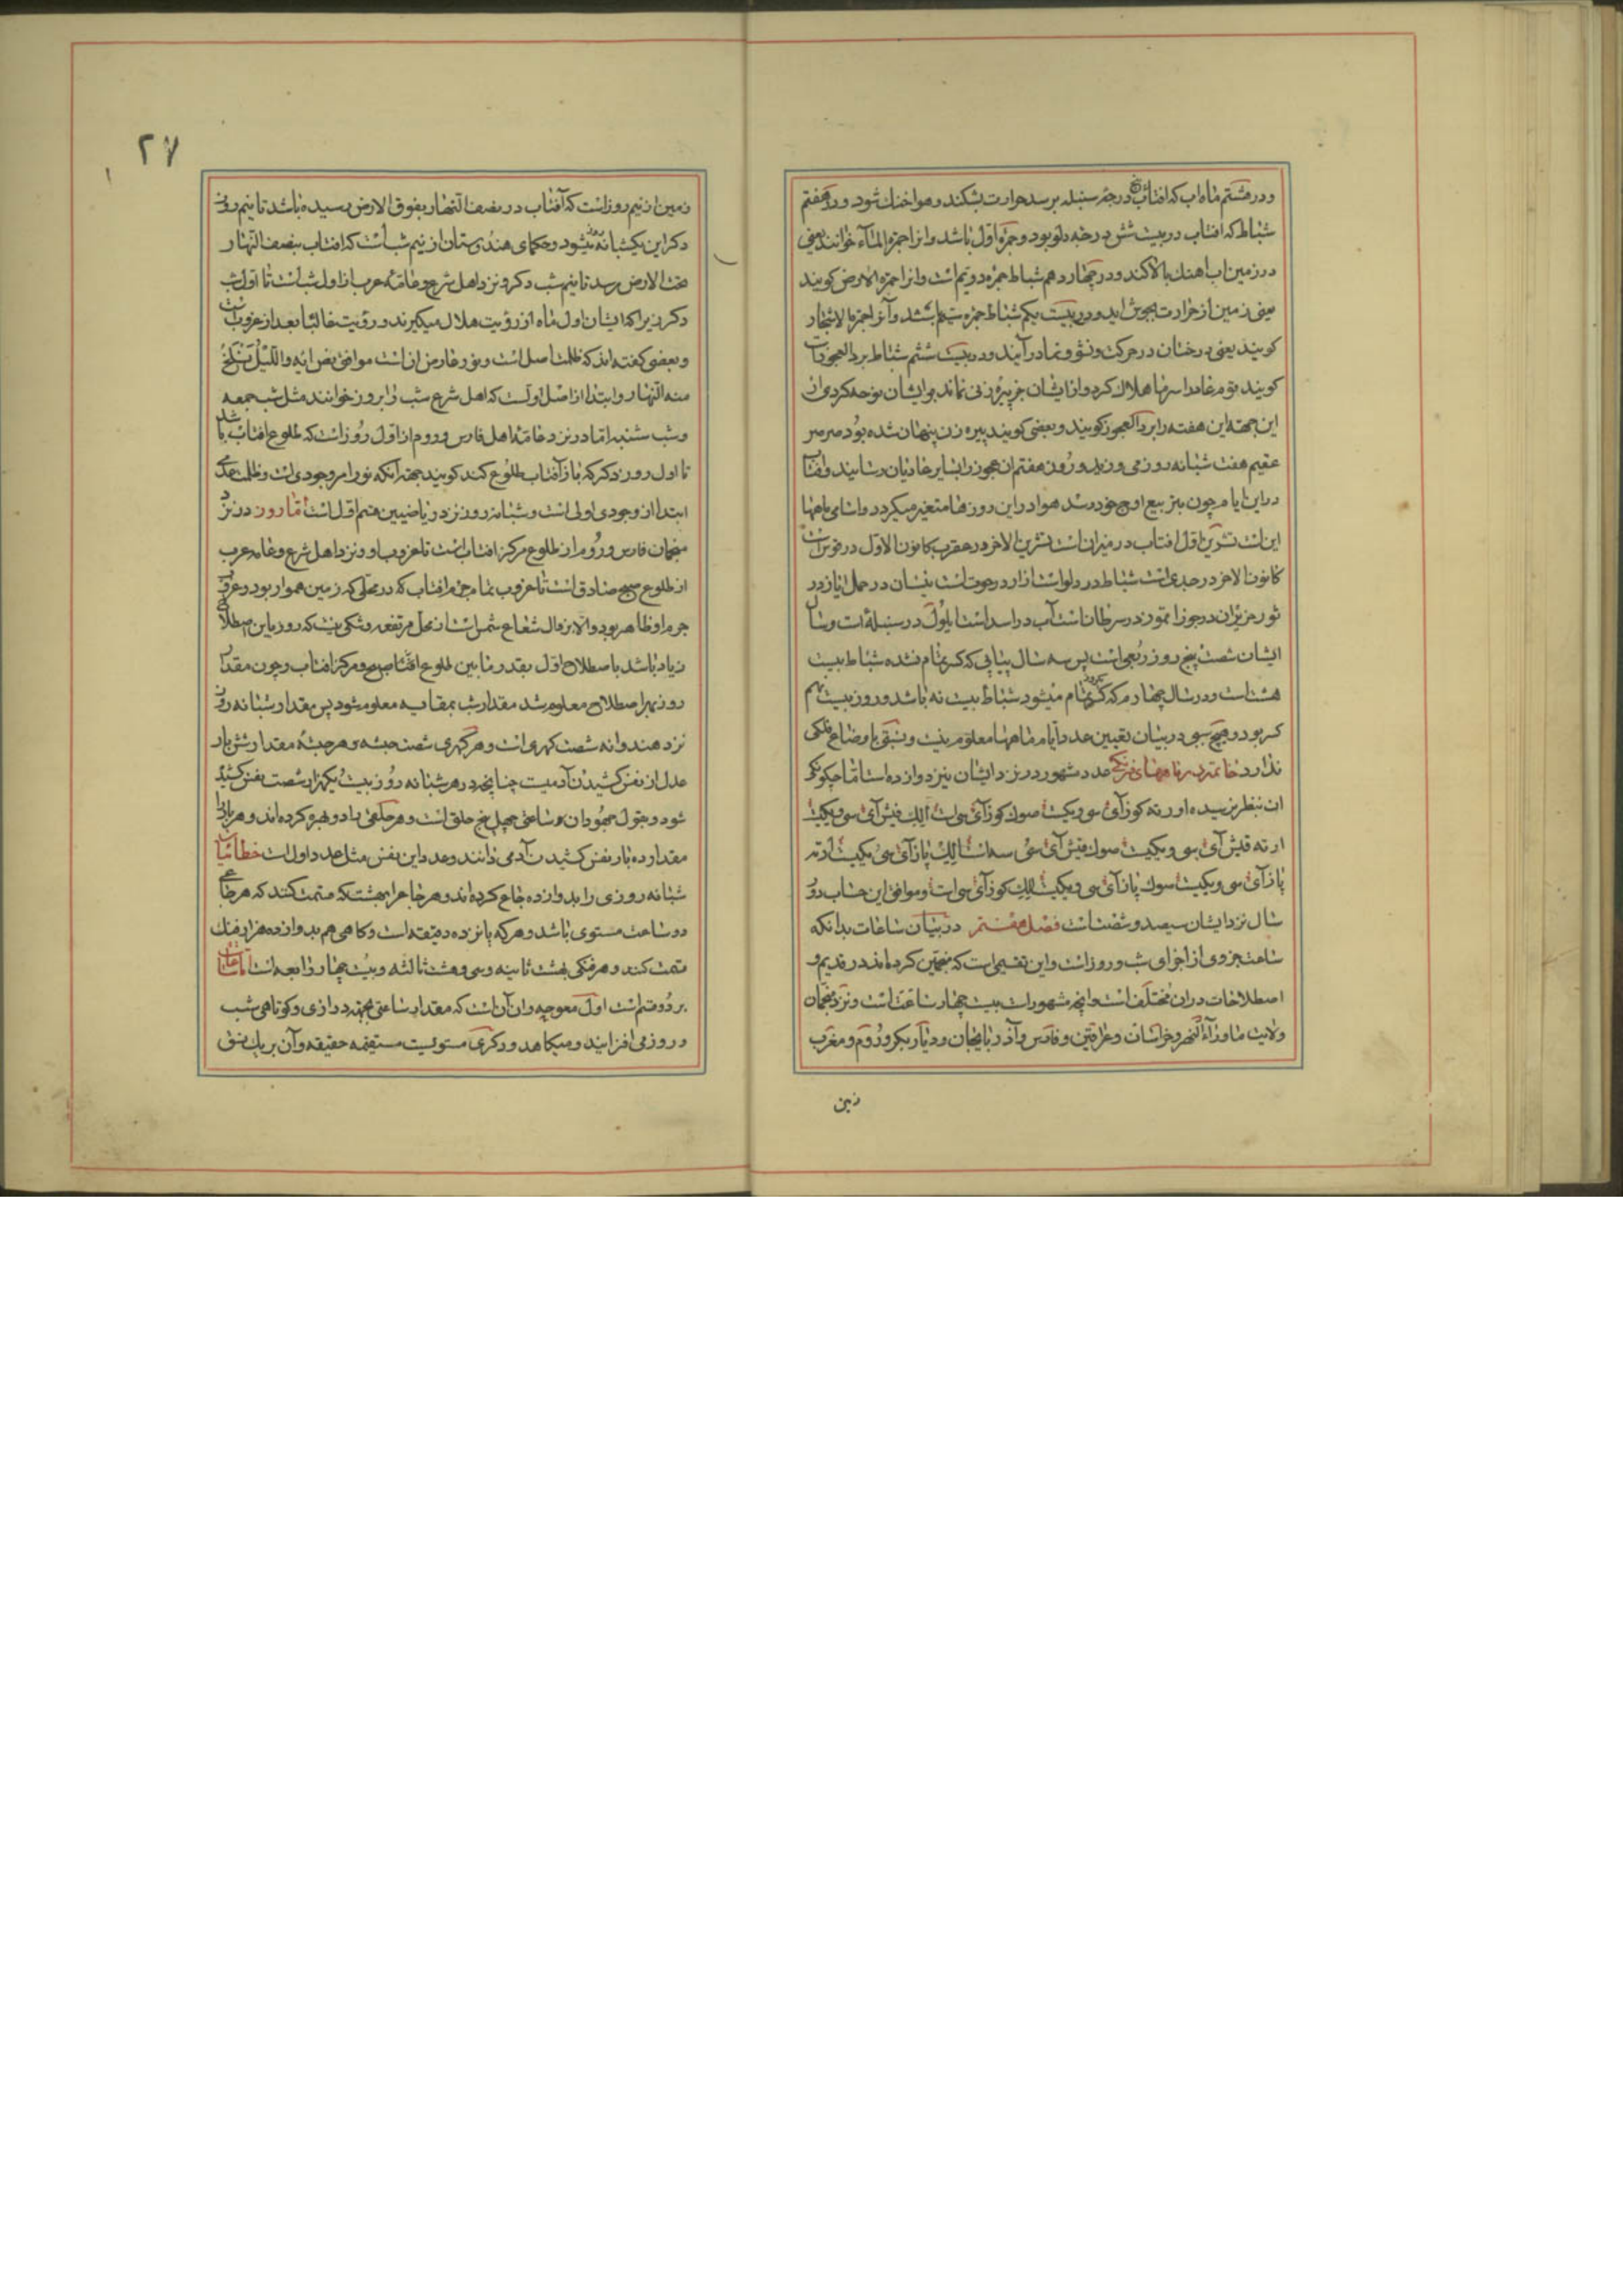 و در هشتم ماه اب که افتاب درجهٔ سنبله برسد حرارت بشکند و هوا خنك شود و در هفتم
شباط که افتاب در بیست شش درجه دلو بود و جمرهٔ اول باشد و انرا جمرة المآء خوانند یعنی
در زمین اب اهنك بالا کند و در چهاردهم شباط جمره دویم است و انرا جمرة الارض کویند
یعنی زمین از حرارت بجوش اید و در بیست یکم شباط جمره سیم باشد و آنرا جمرة الاشجار
کویند یعنی درختان در حرکت و نشو و نما در آیند و در بیست ششم شباط برد العجوز است
کویند قوم عاد را سرما هلاك کرد و از ایشان جز پیره زنی نماند بر ایشان نوحه کردی از
این جهة این هفته را برد العجوز کویند و بعضی کویند پیره زن پنهان شده بود صرصر
عقیم هفت شبانه روز می وزید و روز هفتم ان عجوز را بسایر عادیان رسانید و افتاب
در این ایام چون بتربیع اوج خود رسد هوا در این روزها متغیر میکردد و اسامی ماهها
این است تشرین اول افتاب در میزان است تشرین الاخر در عقرب کانون الاول در قوس است
کانون الاخر در جدی است شباط در دلو است ازار در حوت است نیسان در حمل ایاز در
ثور حزیران در جوزا تموز در سرطان است آب در اسد است ایلول در سنبله است و سال
ایشان شصت پنج روز ربعی است پس سه سال پیاپی که کسر تمام نشده شباط بیست
هشت است و در سال چهارم که کسر تمام میشود شباط بیست نه باشد و روز بیست نهم
کسر بود و هیچ سببی در بیان تعیین عدد ایام ماهها معلوم نیست و نسبتی با وضاع فلکی
ندارد خاتمه در ماههای فرنکی عدد شهور در نزد ایشان نیز دوازده است اما چکونکی
ان بنظر نرسیده اورته کوز آی سی و یکست صوك کوز آی سی است الك قیش آی سی و یکست
ارته قیش آی سی و یکیست صوك قیش آی سی سه است الك یاز آی سی یکیست اورته
یاز آی سی و یکیست سوك یاز آی سی و یکیست الك کوز آی سی است و موافق این حساب دو
سال نزد ایشان سیصد و شصت است فصل هفتم در بیان ساعات بدانکه
ساعت جزوی از اجزای شب و روز است و این تقسیمی است که منجمین کرده اند در قدیم و
اصطلاحات در ان مختلف است و انچه مشهور است بیست چهار ساعت است و نزد منجمان
ولایت ماوراء النهر و خراسان و عراقین و فارس و آذربایجان و دیار بکر و روم و مغرب
زمین
۲۷
زمین از نیم روز است که آفتاب در نصف النهار بفوق الارض رسیده باشد تا نیم روز
دکر این یکشبانه روز میشود و حکمای هندوستان از نیم شب است که افتاب بنصف النهار
تحت الارض رسد تا نیم شب دکر و نزد اهل شرع و عامهٔ عرب از اول شب است تا اول شب
دکر زیرا که ایشان اول ماه از رؤیت هلال میکیرند و رؤیت غالبا بعد از غروب است
و بعضی کفته اند که ظلمت اصل است و نور عارض ان است موافق نص ایه والّیل نسلخ
منه النهار و ابتدا از اصل اولیست که اهل شرع شب را بروز خوانند مثل شب جمعه
و شب شنبه اما در نزد عامهٔ اهل فارس و روم از اول روز است که طلوع افتاب باشد
تا اول روز دکر که باز آفتاب طلوع کند کویند بجهة آنکه نور امر وجودی است و ظلمت عدمی
ابتدا از وجودی اولی است و شبانه روز نزد ریاضیین قسم اول است اما روز در نزد
منجمان فارس و روم از طلوع مرکز افتاب است تا غروب او و نزد اهل شرع و عامه عرب
از طلوع صبح صادق است تا غروب تمام جرم افتاب که در محلی که زمین هموار بود و غروب
جرم او ظاهر بود و الا زوال شعاع شمس است از محل مرتفعه و شکی نیست که روز باین اصطلاح
زیاد باشد باصطلاح اول بقدر مابین طلوع صبح و مرکز افتاب و چون مقدار
روز بهر اصطلاح معلوم شد مقدار شب بمقایسه معلوم شود پس مقدار شبانه روز
نزد هندوانه شصت کهری است و هر کهری شصت حبشه و هر حبشهٔ مقدار شش بار
عدل از نفس کشیدن آدمیست چنانچه در هر شبانه روز بیست یکهزار ششصت نفس کشیده
شود و بقول جهودان هر ساعتی چهل پنج حلق است و هر حلقی بادو هبرو کرده اند و هر بادی
مقدار ده بار نفس کشیدن آدمی دانند و عدد این نفس مثل عدد اول است خطائیان
شبانه روزی را بدوازده جاع کرده اند و هر جاعرا بهشت که قسمت کنند که هر جاعی
دو ساعت مستوی باشد و هر که پانزده دقیقه است و کاهی هم بدوازده هزار فنك
قسمت کنند و هر فنکی هشت ثانیه و سی و هشت ثالثه و بیست چهار رابعه است اما ساعات
بر دو قسم است اول معوجه و ان آن است که مقدار ساعتی بجهة درازی و کوتاهی شب
و روز می افزایند و میکاهد و دکری مستویست مستقیمه حقیقه و آن بر یك نسق